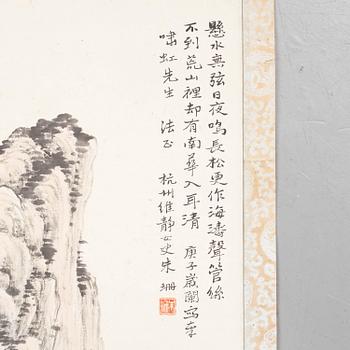 懸水無弦日夜鳴長松更作海濤聲管絲
不到荒山裡却有南華入耳清 庚子歲闌寫奉
啸虹先生 法正
杭州維靜女史朱珊